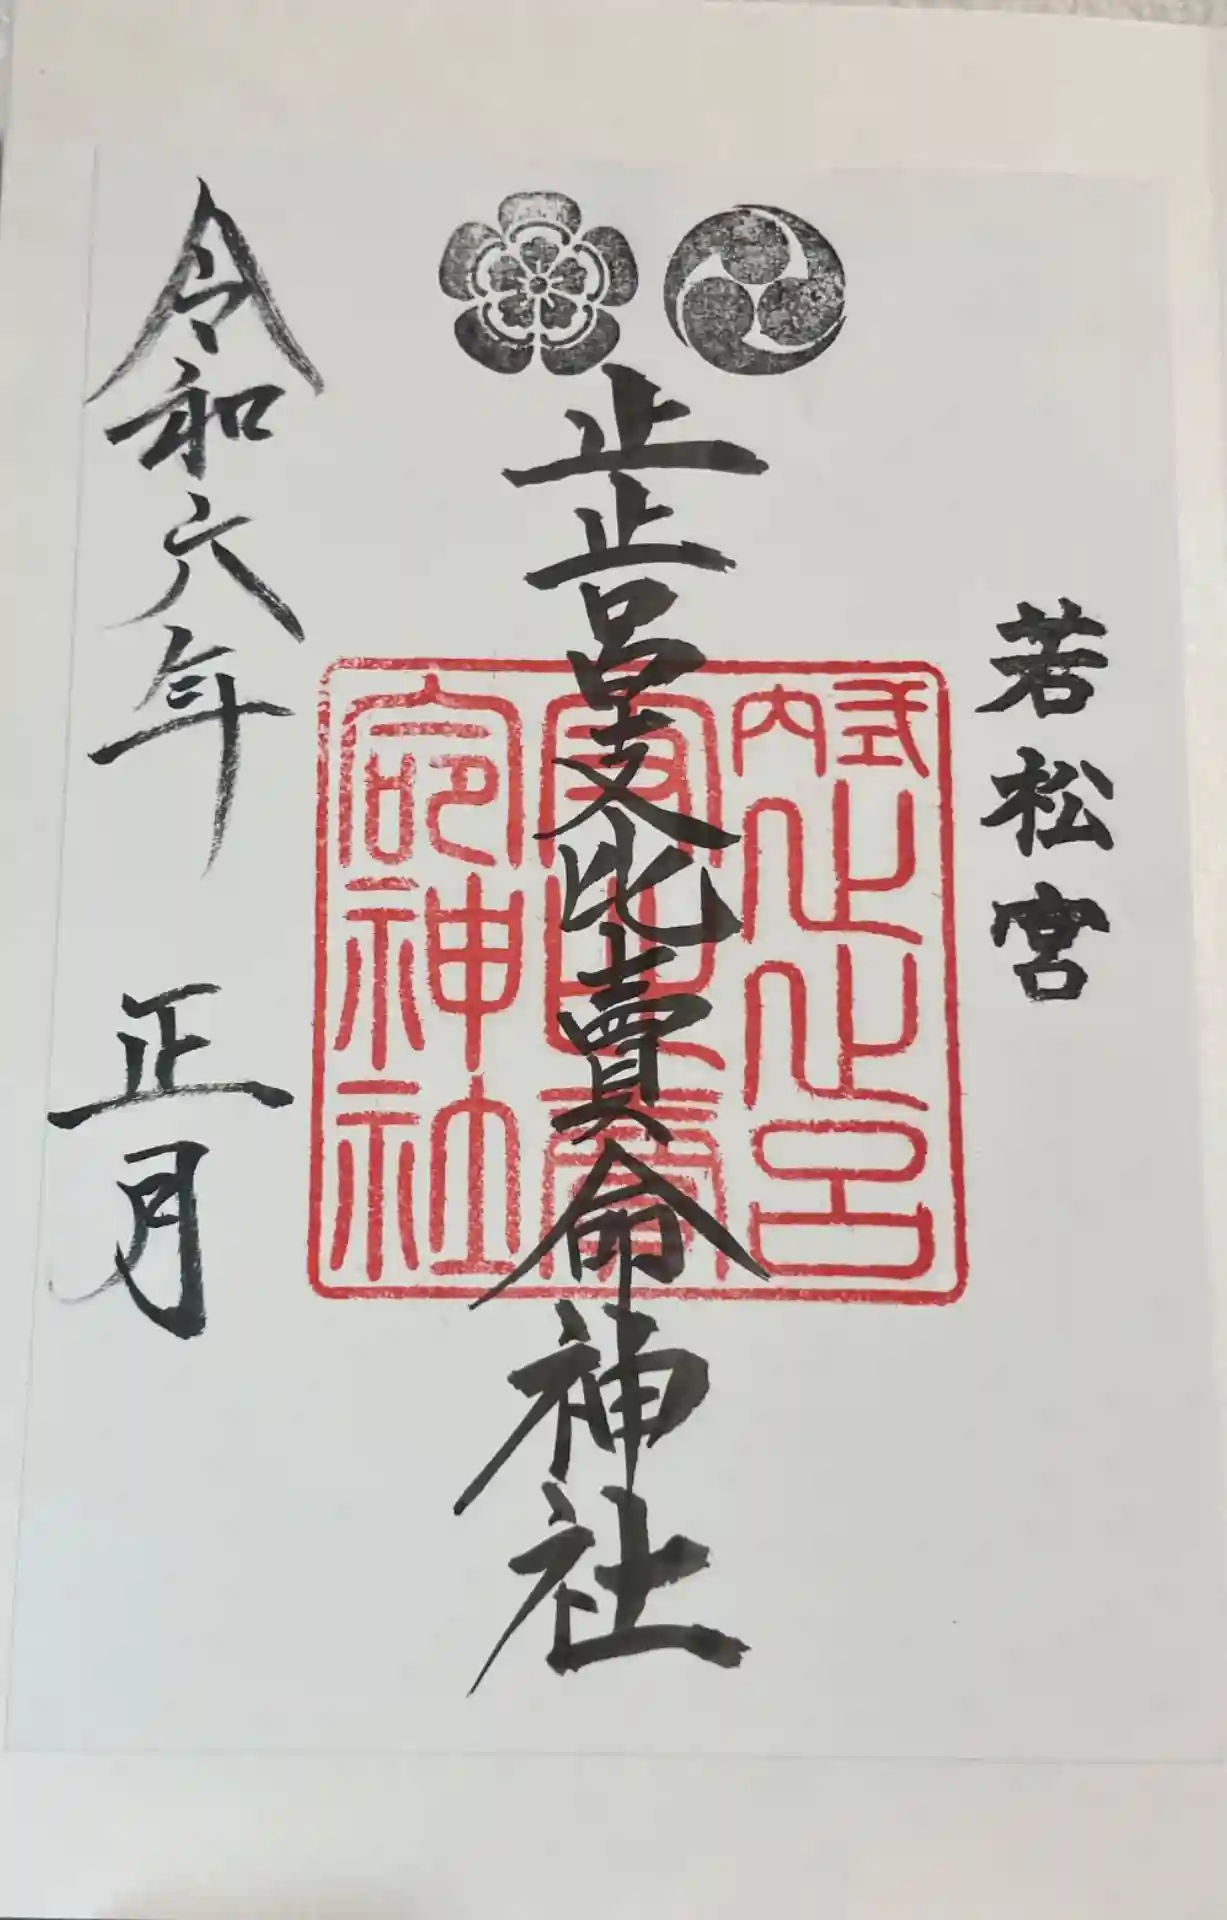 若松宮
止止呂支比賣命神社
令和六年 正月
式内止止呂
神社